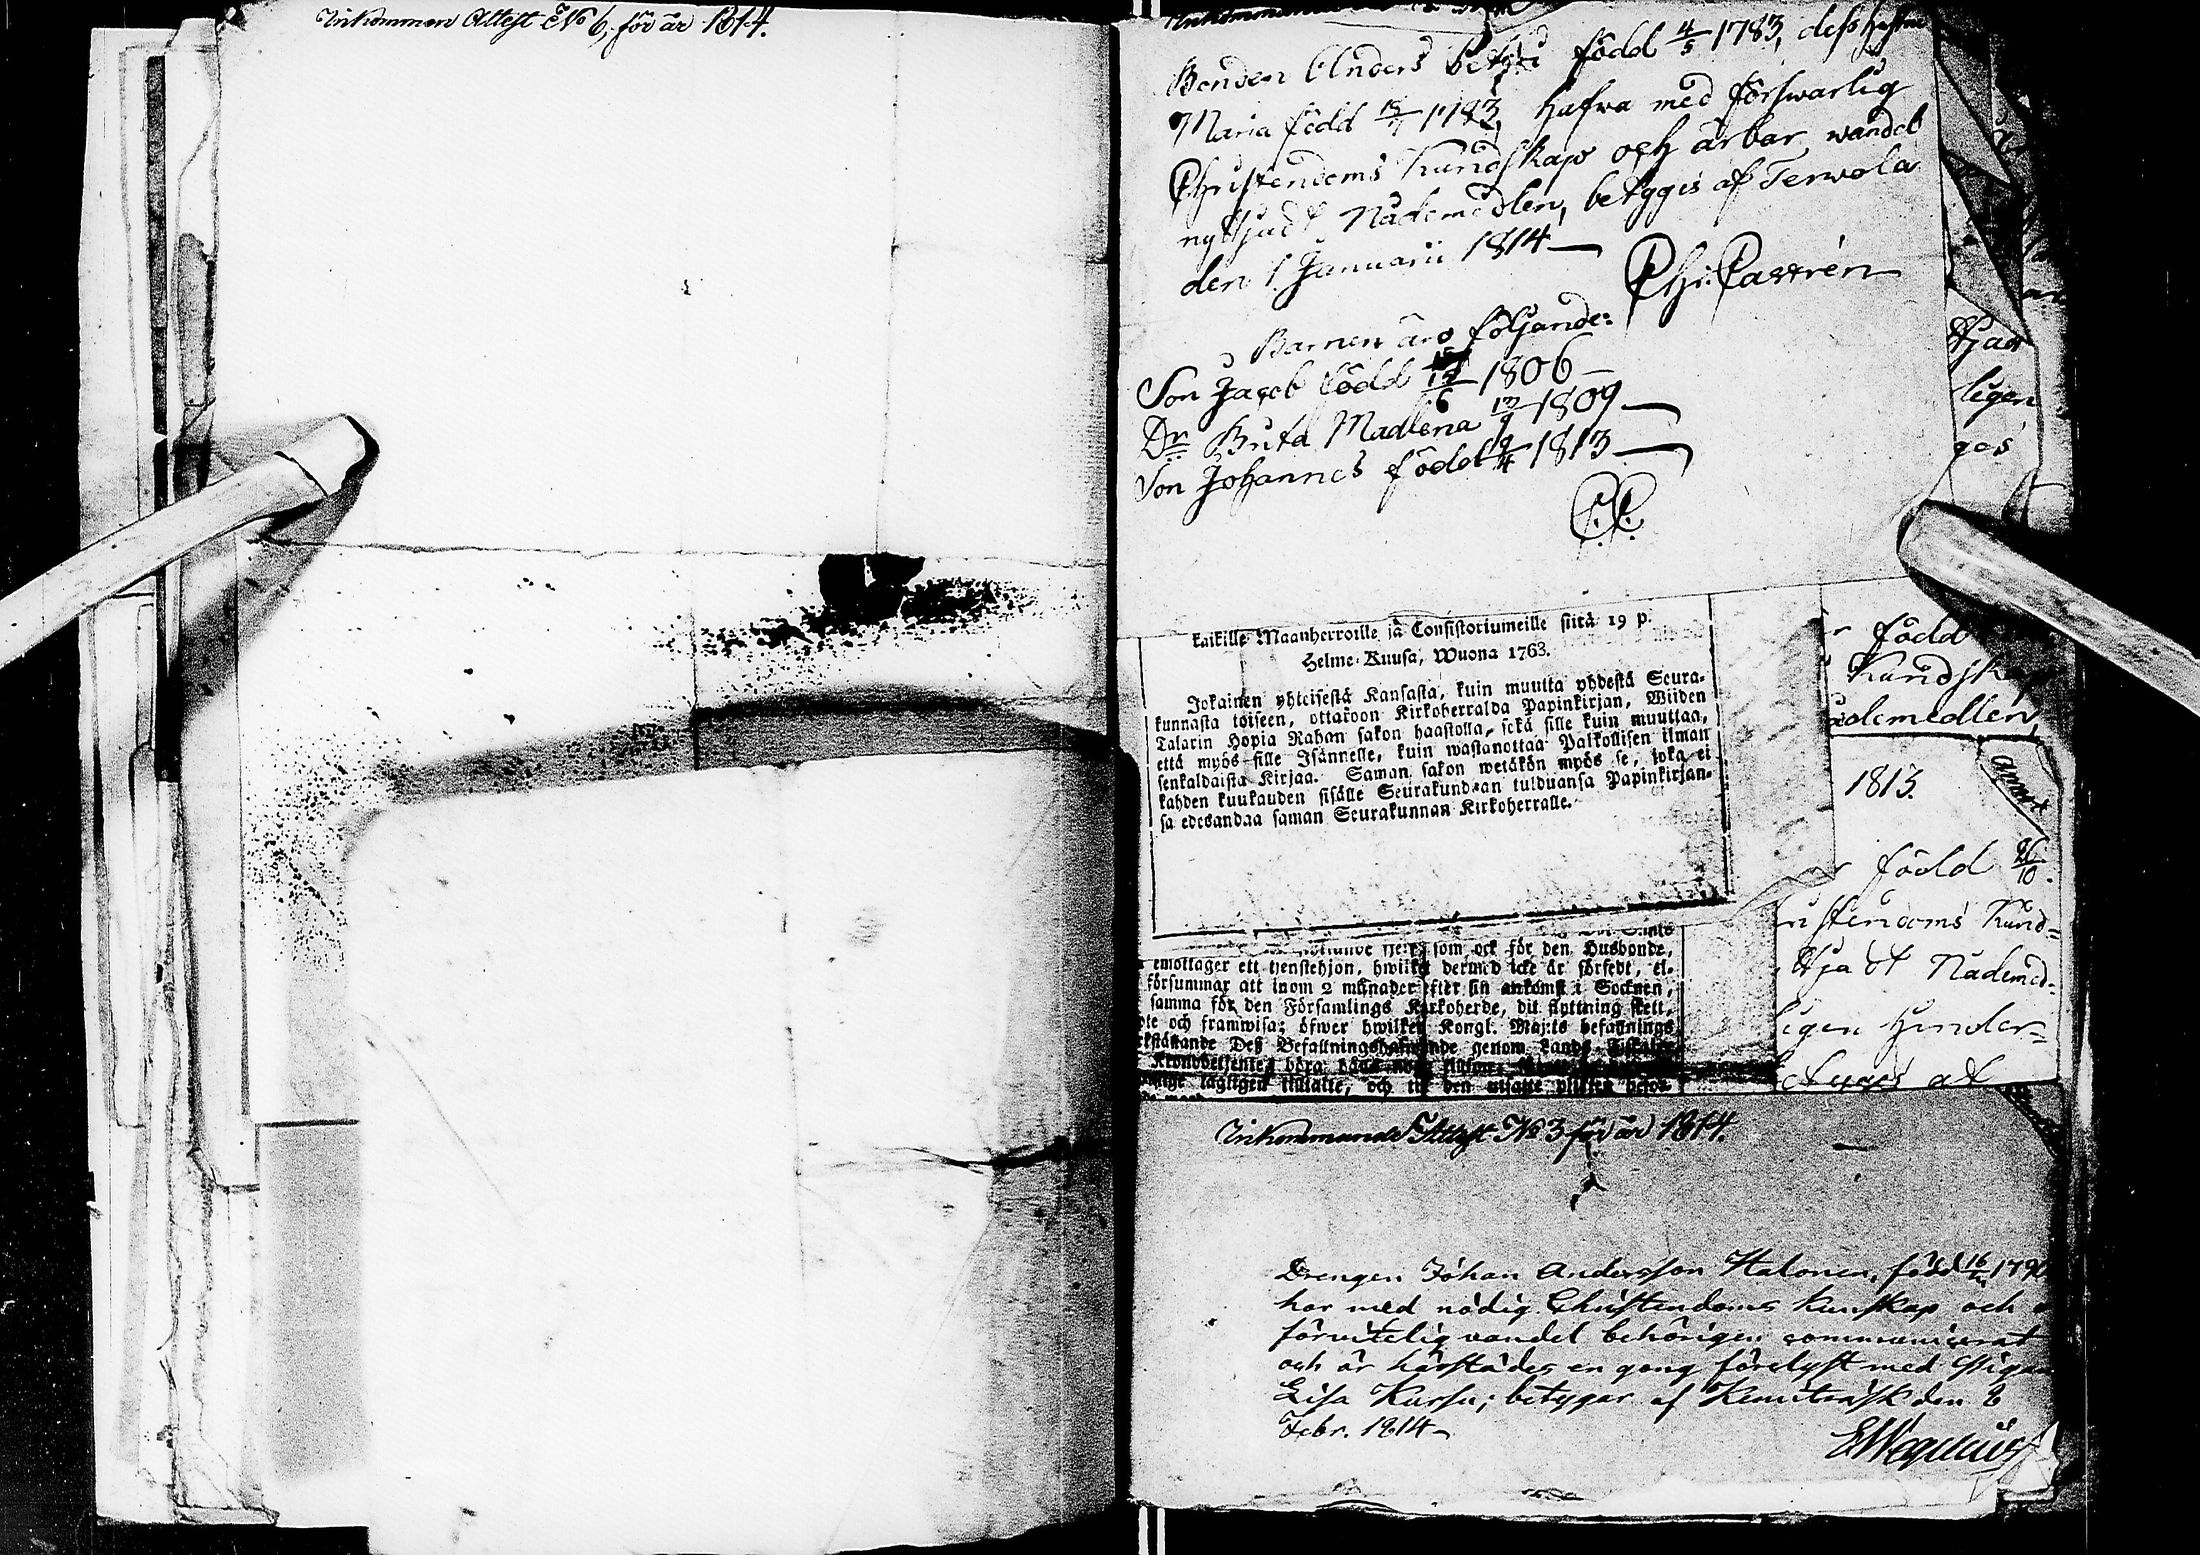 Inkommen Attest No 6, för år 1814.
Bonden Anders född 4/5 1783, dess hustru
Maria född 1783, hafwa med förswarlig
Christendoms Kundskap och ärbar wandel
nyttjadt Nådemedlen, betygges af Terwola
den 1. Januarii 1814
Chr. Castrén
Barnen äro följande:
Son Jacob född 1806
Dr. Brita Madlena 1809
Son Johannes född 9/4 1813
C. C.
kaikille Maanherroille ja Consistoriumeille siitä 19 p.
Helme-Kuusa, Wuona 1763.
Jokainen yhteisestä Kansasta, kuin muutta yhdestä Seura-
kunnasta toiseen, ottakoon Kirkoherralda Papinkirjan, Wiiden
Talarin Hopia Rahan sakon haastolla, sekä sille kuin muuttaa,
että myös sille Isännelle, kuin wastanottaa Palkollisen ilman
senkaldaista Kirjaa. Saman sakon wetäkön myös se, joka ei
kahden kuukauden sisälle Seurakundaan tulduansa Papinkirjan-
sa edesandaa saman Seurakunnan Kirkoherralle.
som ock för den Husbonde,
emottager ett tjenstehjon, hwilket dermed icke är försedt, el-
försummar att inom 2 månader efter sin ankomst i Socknen,
samma för den Församlings Kyrkoherde, dit flyttning skett,
te och framwisa; öfwer hwilket Kongl. Maj:ts befallnings
Deß Befallningshafwande genom Lands
tjad
ligen
ges
född
Kundskap
ademedlen,
1813.
född 26/10
ristendoms Kund=
ttjadt Nådemed=
ligen hinder=
etyges af
Inkommande Attest No 3 för år 1814.
Drengen Johan Andersson Halonen, född 16/ 179
har med nödig Christendoms kunskap och
förwitelig wandel behörigen communicerat
och är härstädes en gång förelyst med Pigan
Lisa Kursu; betygar af Kemiträsk den 8
Febr. 1814